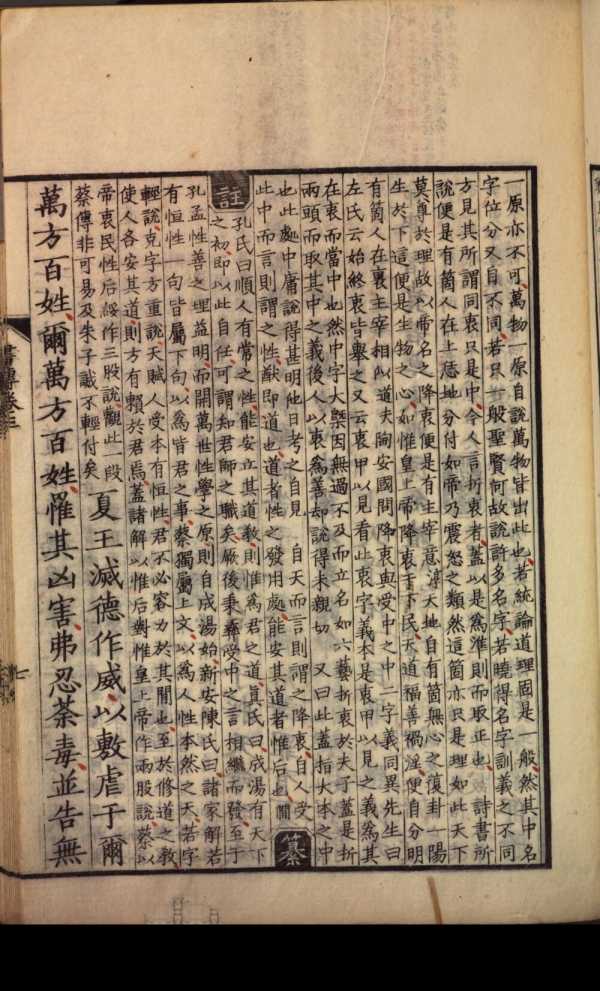 一原亦不可萬物一原自說萬物皆出此也若統論道理固是一般然其中名
字位分又自不同若只一般聖賢何故說許多名字若曉得名字訓義之不同
方見其所謂同衷只是中今人言折衷者蓋以是為準則而取正也 詩書所
說便是有箇人在上恁地分付如帝乃震怒之類然這箇亦只是理如此天下
莫尊於理故以帝名之降衷便是有主宰意 大地自有箇無心之復卦一陽
生於下這便是生物之心如惟皇上帝降衷于下民天道福善禍淫便自分明
有箇人在裏主宰相似道夫 安國問降衷與受中之中二字義同異先生曰
左氏云始終衷皆舉之又云衷甲以見看此衷字義本是衷甲以見之義為其
在衷而當中也然中字大槩因無過不及而立名如六藝折衷於夫子蓋是折
兩頭而取其中之義後人以衷為善却說得未親切 又曰此蓋指大本之中
也此處中庸說得甚明他日考之自見 自天而言則謂之降衷自人受
此中而言則謂之性猷即道也道者性之發用處能安其道者惟后也
纂
註
孔氏曰順人有常之性能安立其道教則惟為君之道真氏曰成湯有天下
之初即以此自任可謂知君師之職矣厥後秉彝受中之言相繼而發至于
孔孟性善之理益明而開萬世性學之原則自成湯始新安陳氏曰諸家解若
有恒性一句皆屬下句以為皆君之事蔡獨屬上文以為人性本然之天若字
輕說克字方重說天賦人受本有恒性君不必容力於其間也至於修道之教
使人各安其道則方有賴於君焉蓋諸解以惟后對惟皇上帝作兩股說蔡以
帝衷民性后綏作三股說觀此一段
蔡傳非可易及朱子誠不輕付矣
夏王滅德作威以敷虐于爾
萬方百姓爾萬方百姓罹其凶害弗忍荼毒並告無
書傳卷三
七